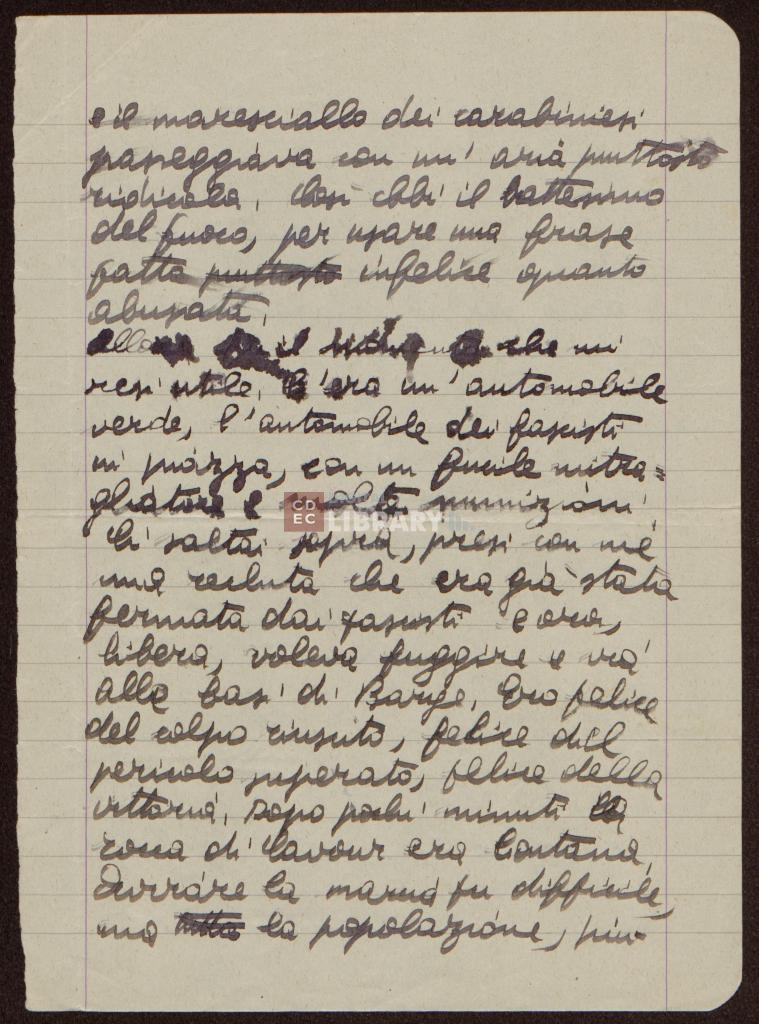 e il maresciallo dei carabinieri
passeggiava con un' aria piuttosto
ridicola. Così ebbi il battesimo
del fuoco, per usare una frase
fatta piuttosto infelice quanto
abusata.
il che mi
resi utile. C'era un' automobile
verde, l'automobile dei fascisti
in piazza, con un fucile mitra=
gliatore e molte munizioni
Ci saltai sopra, presi con me
una recluta che era già stata
fermata dai fascisti e ora,
libera, voleva fuggire e via
alla basi di Barge. Ero felice
del colpo riuscito, felice del
pericolo superato, felice della
vittoria. Dopo pochi minuti la
rocca di Cavour era lontana.
la marcia fu difficile,
ma tutta la popolazione, piu-
CDEC LIBRARY